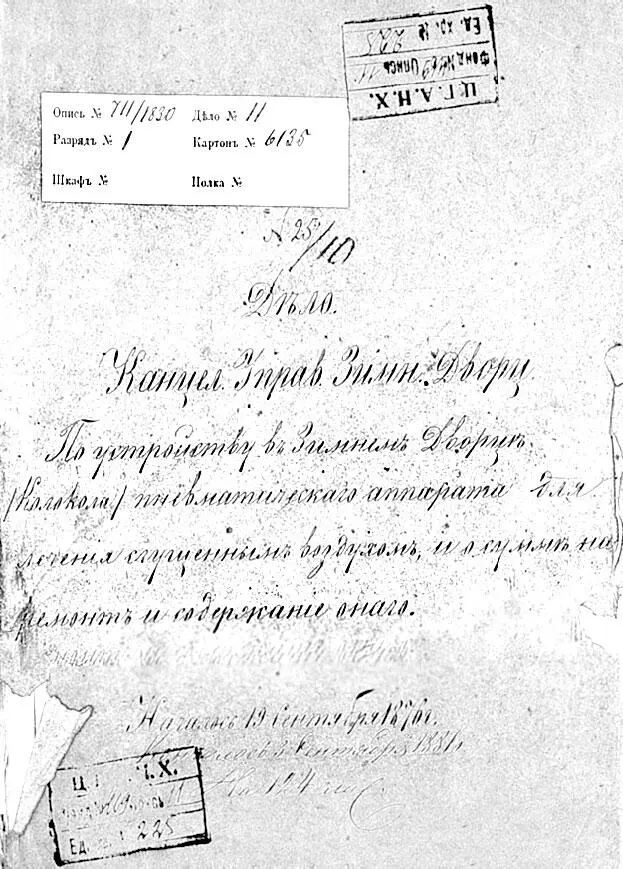 Ц.Г.А.Н.Х.
Фонд № Опись 11
Ед. хр. № 225
Опись № VII/1830 Дѣло № 11
Разрядъ № 1 Картонъ № 6135
Шкафъ № Полка №
№ 25/10
Дѣло.
Канцел. Управ. Зимн. Дворц.
По устройству въ Зимнемъ Дворцѣ
/Колокола/ пневматическаго аппарата для
лечения сгущеннымъ воздухомъ, и о суммѣ на
ремонтъ и содержание онаго.
Началось 19 Сентября 1876 г.
Сентября 1881 г.
На 124
Х.
11
Ед. 225